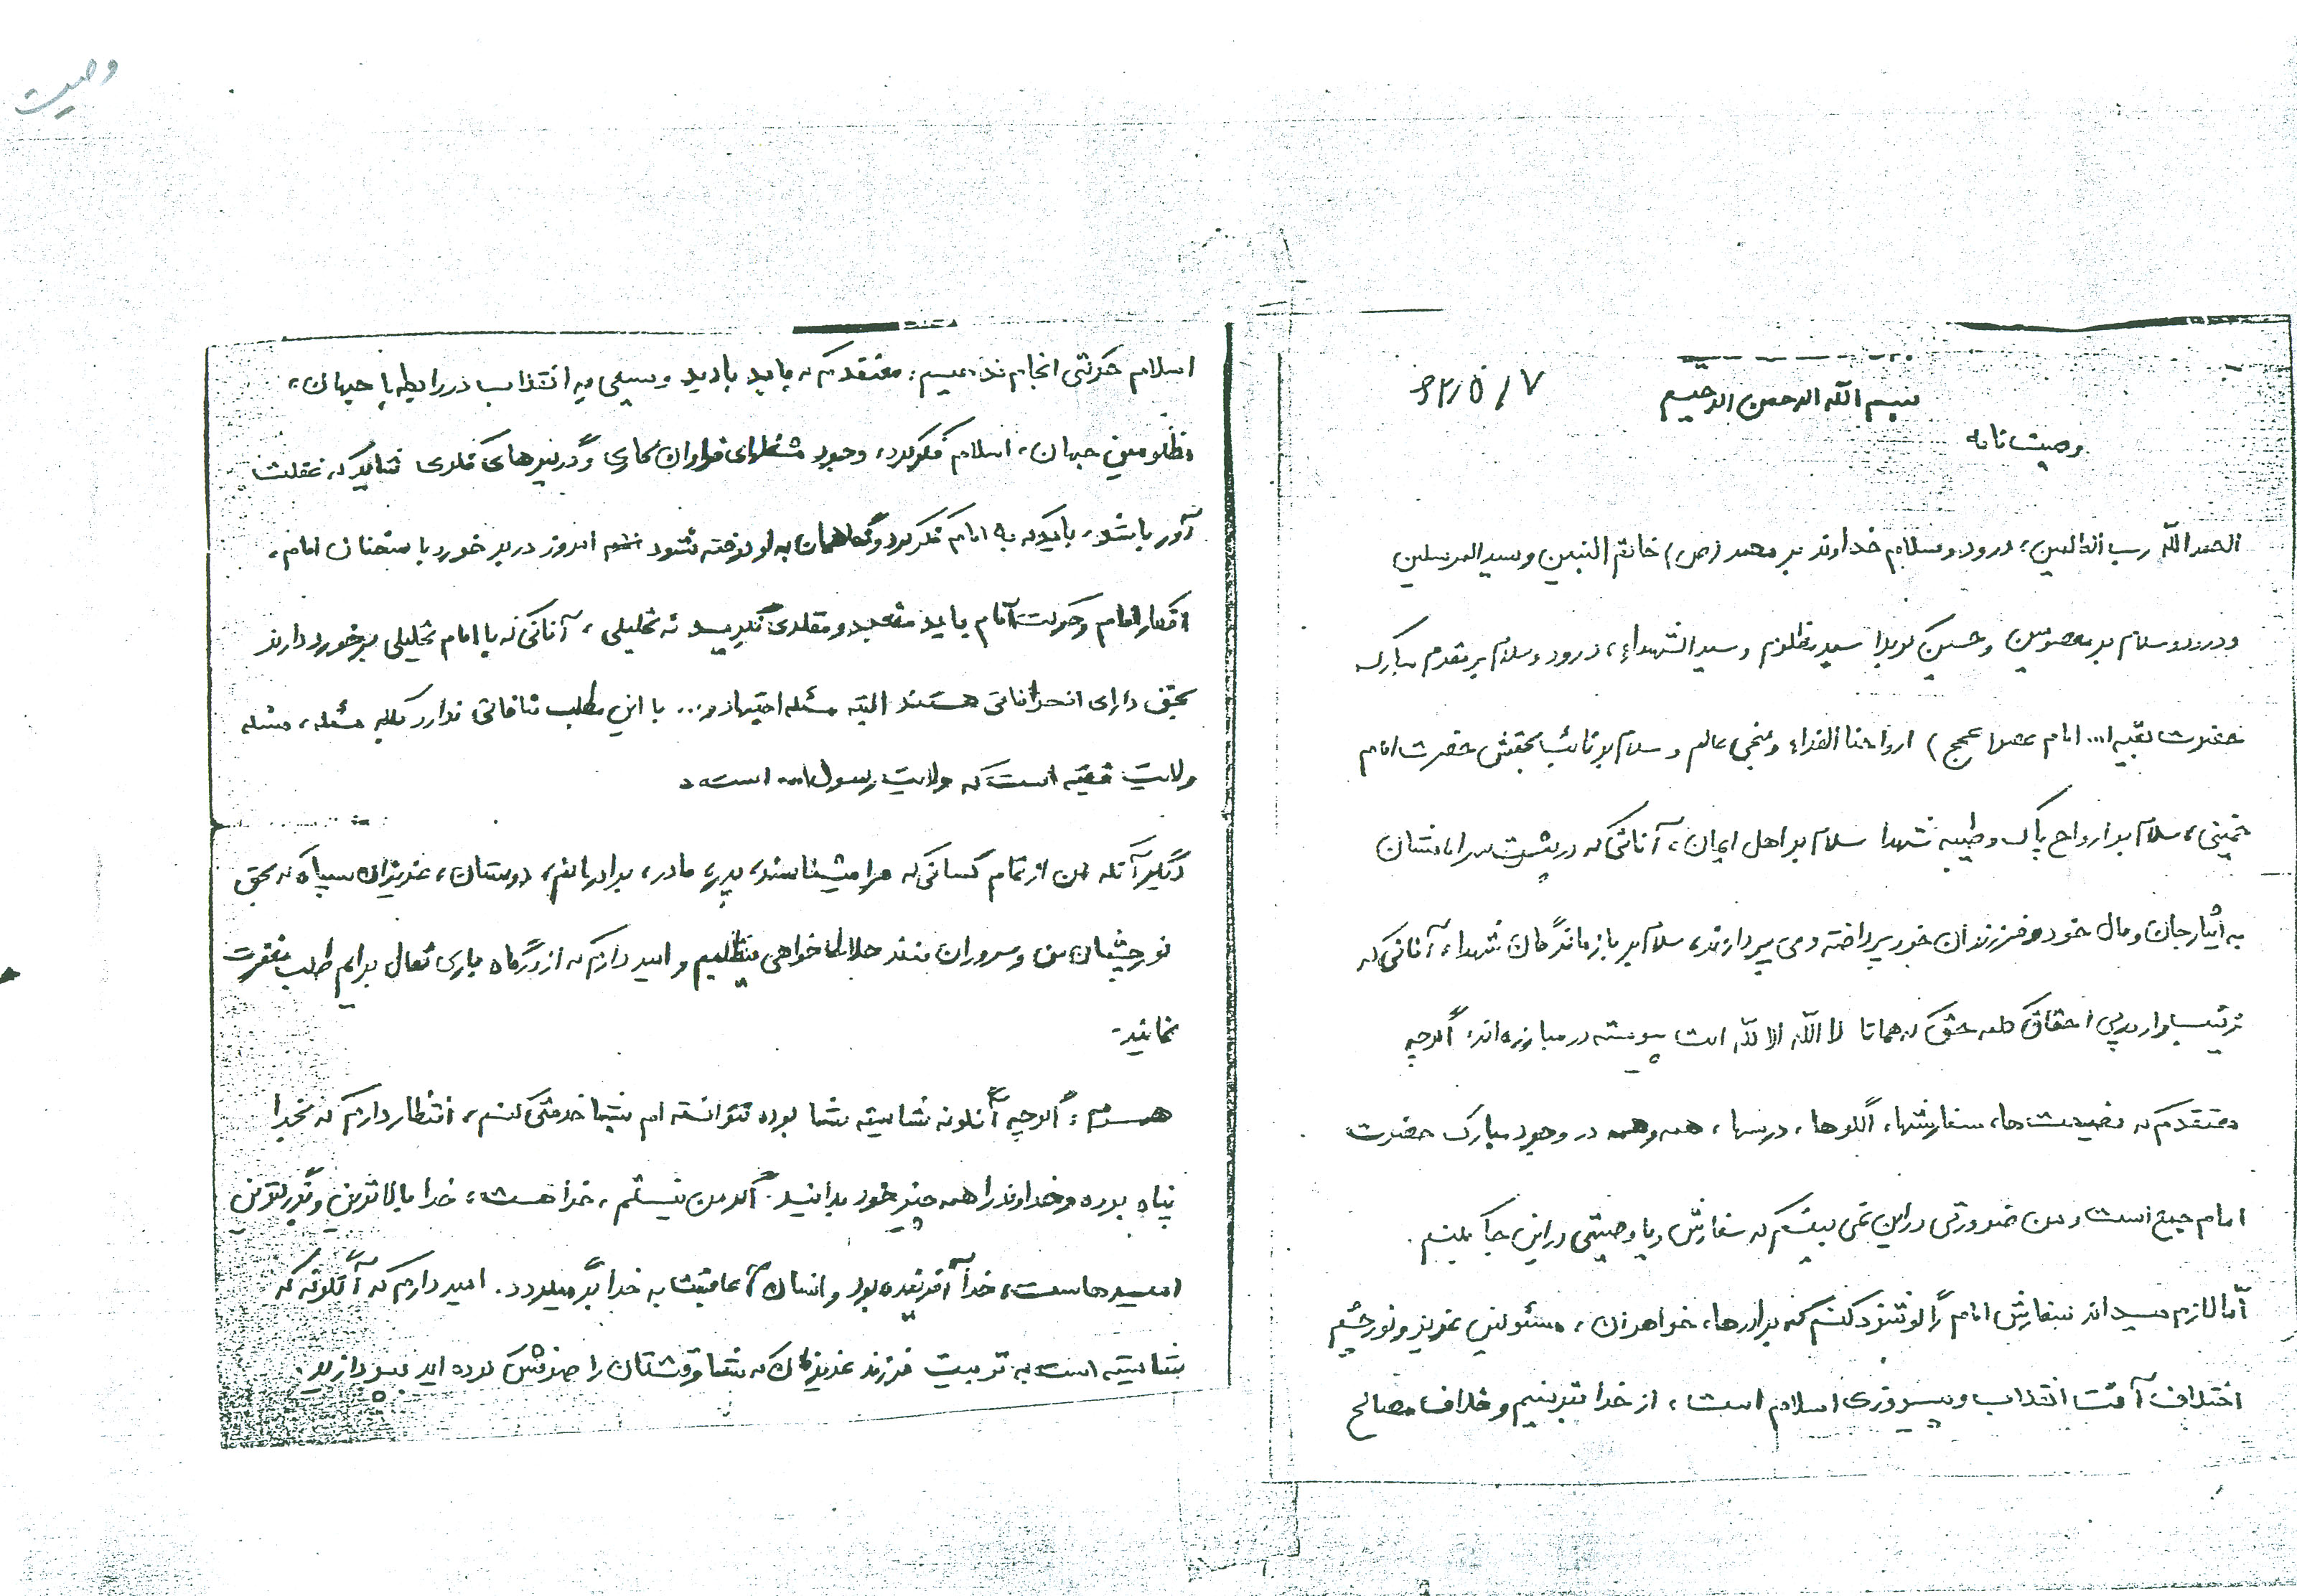 وصیت
بسم الله الرحمن الرحیم
۶۲/۵/۷
وصیت نامه
الحمدالله رب العالمین، درود و سلام خداوند بر محمد (ص) خاتم النبین و سید المرسلین
و درود و سلام بر معصومین و حسین کربلا سید مظلوم و سید الشهداء، درود و سلام بر مقدم مبارک
حضرت بقیه ا... امام عصر( عج ) ارواحنا الفداء و منجی عالم و سلام بر نائب بحقش حضرت امام
خمینی، سلام بر ارواح پاک و طیبه شهدا سلام بر اهل ایمان، آنانی که در پشت سر امامشان
به ایثار جان و مال خود و فرزندان خود پرداخته و می پردازند، سلام بر بازماندگان شهدا، آنانی که
زینب وار در پی احقاق کلمه حق که همانا لا الله الا لله است پیوسته در مبارزه اند. اگرچه
معتقدم که نصیحت ها، سفارشها، الگوها، درسها، همه و همه در وجود مبارک حضرت
امام جمع است و من ضرورتی در این نمی بینم که سفارش و یا وصیتی در این جا بکنم.
اما لازم میداند سفارش امام را گوشزد کنم که برادرها، خواهران، مسئولین عزیز و نور چشم
اختلاف آفت انقلاب و پیروزی اسلام است، از خدا بترسیم و خلاف مصالح
اسلام حرکتی انجام ندهیم، معتقدم که باید با دید وسیعی به انقلاب در رابطه با جهان،
مظلومین جهان، اسلام فکر کرد، وجود مشغله‌های فراوان کاری و درگیرهای فکری نباید که غفلت
آور باشد، باید که به امام فکر کرد و گاهمان به او دوخته شود امروز در برخورد با سخنان امام،
افکار امام و حرکت امام باید متعبد و مقلدی نگریست نه تحلیلی، آنانی که با امام تحلیلی برخورد دارند
بحق دارای انحرافاتی هستند البته مسئله اجتهاد و... با این مطلب منافاتی ندارد بلکه مسئله، مسئله
ولایت فقیه است که ولایت رسول الله است.
دیگر آنکه من از تمام کسانی که مرا میشناسند، پدر، مادر، برادرانم، دوستان، عزیزان سپاه که بحق
نور چشمان من و سروران منند حلالیت خواهی میطلبم و امید دارم که از درگاه باری تعال برایم طلب مغفرت
نمائید.
همسرم: اگرچه آنگونه شایسته شما بوده نتوانسته ام بشما خدمتی کنم، انتظار دارم که بخدا
پناه برده و خداوند را همه چیز خود بدانید. اگر من نیستم، خدا هست، خدا بالاترین و بزرگترین
امیدهاست، خدا آفریننده بود و انسان عاقبت به خدا بر میگردد. امید دارم که آنگونه که
شایسته است به تربیت فرزند عزیزمان که شما وقتتان را صرفش کرده اید بپردازید.